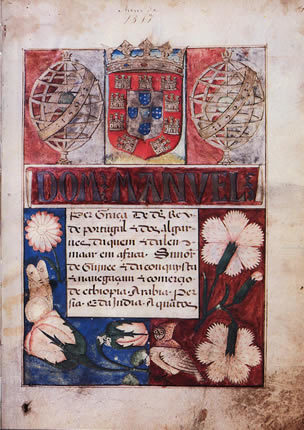 1517
DOM: MANVEL:
Per Graça De ds Rey
de portugal & dos algar
ues, daquem & dalem
maar em africa. Sñnor
de Guinee & da conquista
& nauegaçam & comercio
de ethiopia Arabia per
sia & da India. A quãtos